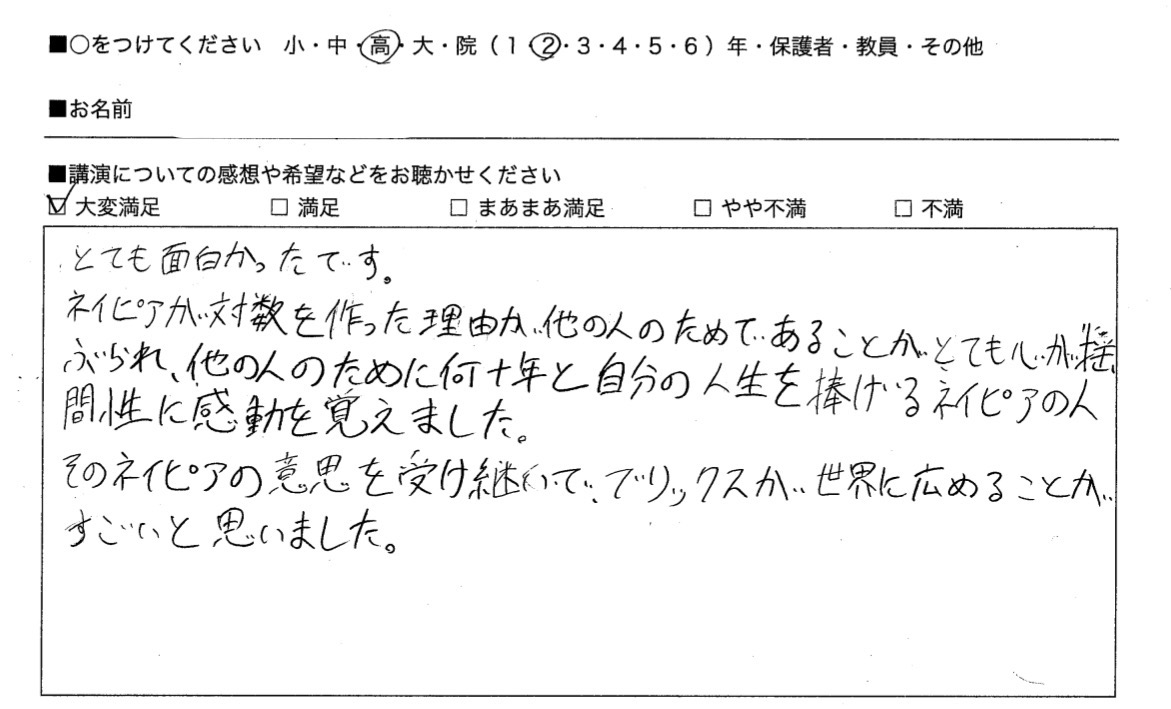 ■○をつけてください 小・中・高・大・院（1・2・3・4・5・6）年・保護者・教員・その他
■お名前
■講演についての感想や希望などをお聴かせください
☑ 大変満足 □ 満足 □ まあまあ満足 □ やや不満 □ 不満
とても面白かったです。
ネイピアが対数を作った理由が他の人のためであることがとても心が揺
ぶられ、他の人のために何十年と自分の人生を捧げるネイピアの人
間性に感動を覚えました。
そのネイピアの意思を受け継いで、ブリックスが世界に広めることが
すごいと思いました。